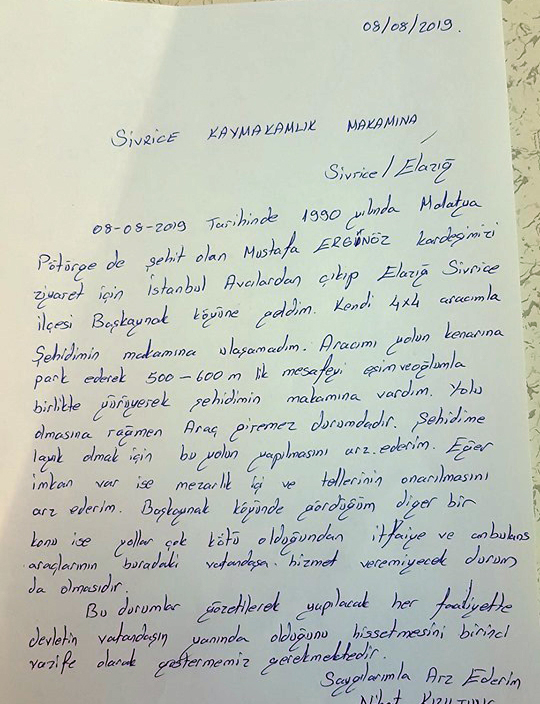 08/08/2019.
SİVRİCE KAYMAKAMLIK MAKAMINA
Sivrice / Elazığ
08-08-2019 Tarihinde 1990 yılında Malatya
Pötürge de şehit olan Mustafa ERGÜNÖZ kardeşimizi
ziyaret için İstanbul Avcılardan çıkıp Elazığ Sivrice
ilçesi Başkaynak köyüne geldim. Kendi 4x4 aracımla
Şehidimin makamına ulaşamadım. Aracımı yolun kenarına
park ederek 500 - 600 m lik mesafeyi eşim ve oğlumla
birlikte yürüyerek şehidimin makamına vardım. Yolu
olmasına rağmen Araç giremez durumdadır. Şehidime
layık olmak için bu yolun yapılmasını arz ederim. Eğer
imkan var ise mezarlık içi ve tellerinin onarılmasını
arz ederim. Başkaynak köyünde gördüğüm diğer bir
konu ise yollar çok kötü olduğundan itfaiye ve ambulans
araçlarının buradaki vatandaşa hizmet veremiyecek durum
da olmasıdır.
Bu durumlar gözetilerek yapılacak her faaliyette
devletin vatandaşın yanında olduğunu hissetmesini birinci
vazife olarak göstermemiz gerekmektedir.
Saygılarımla Arz Ederim
Nihat